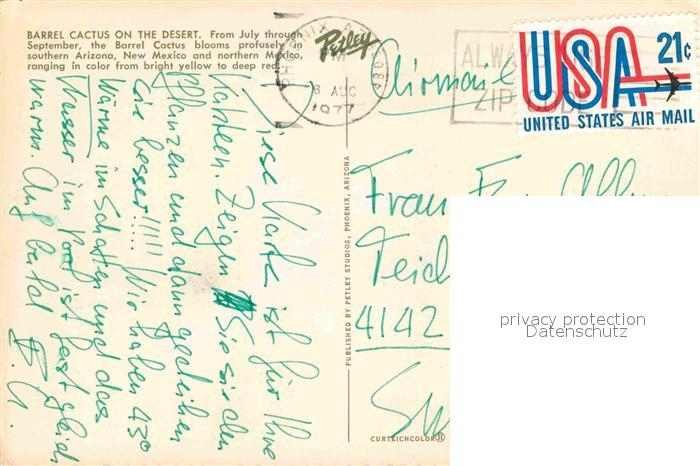 BARREL CACTUS ON THE DESERT. From July through
September, the Barrel Cactus blooms profusely in
southern Arizona, New Mexico and northern Mexico,
ranging in color from bright yellow to deep red.
Petley
PHOENIX, A
PM
6 AUG
1977
ALWAYS
ZIP CODE
USA 21¢
UNITED STATES AIR MAIL
Airmail
Diese Karte ist für Ihre
Kakteen. Zeigen Sie sie den
Pflanzen und dann gedeihen
sie besser!!!! Wir haben 43°
Wärme im Schatten und das
Wasser im Pool ist fast gleich
warm. Auf bald
PUBLISHED BY PETLEY STUDIOS, PHOENIX, ARIZONA
Frau
Teich
4142
CURTEICHCOLOR®
privacy protection
Datenschutz